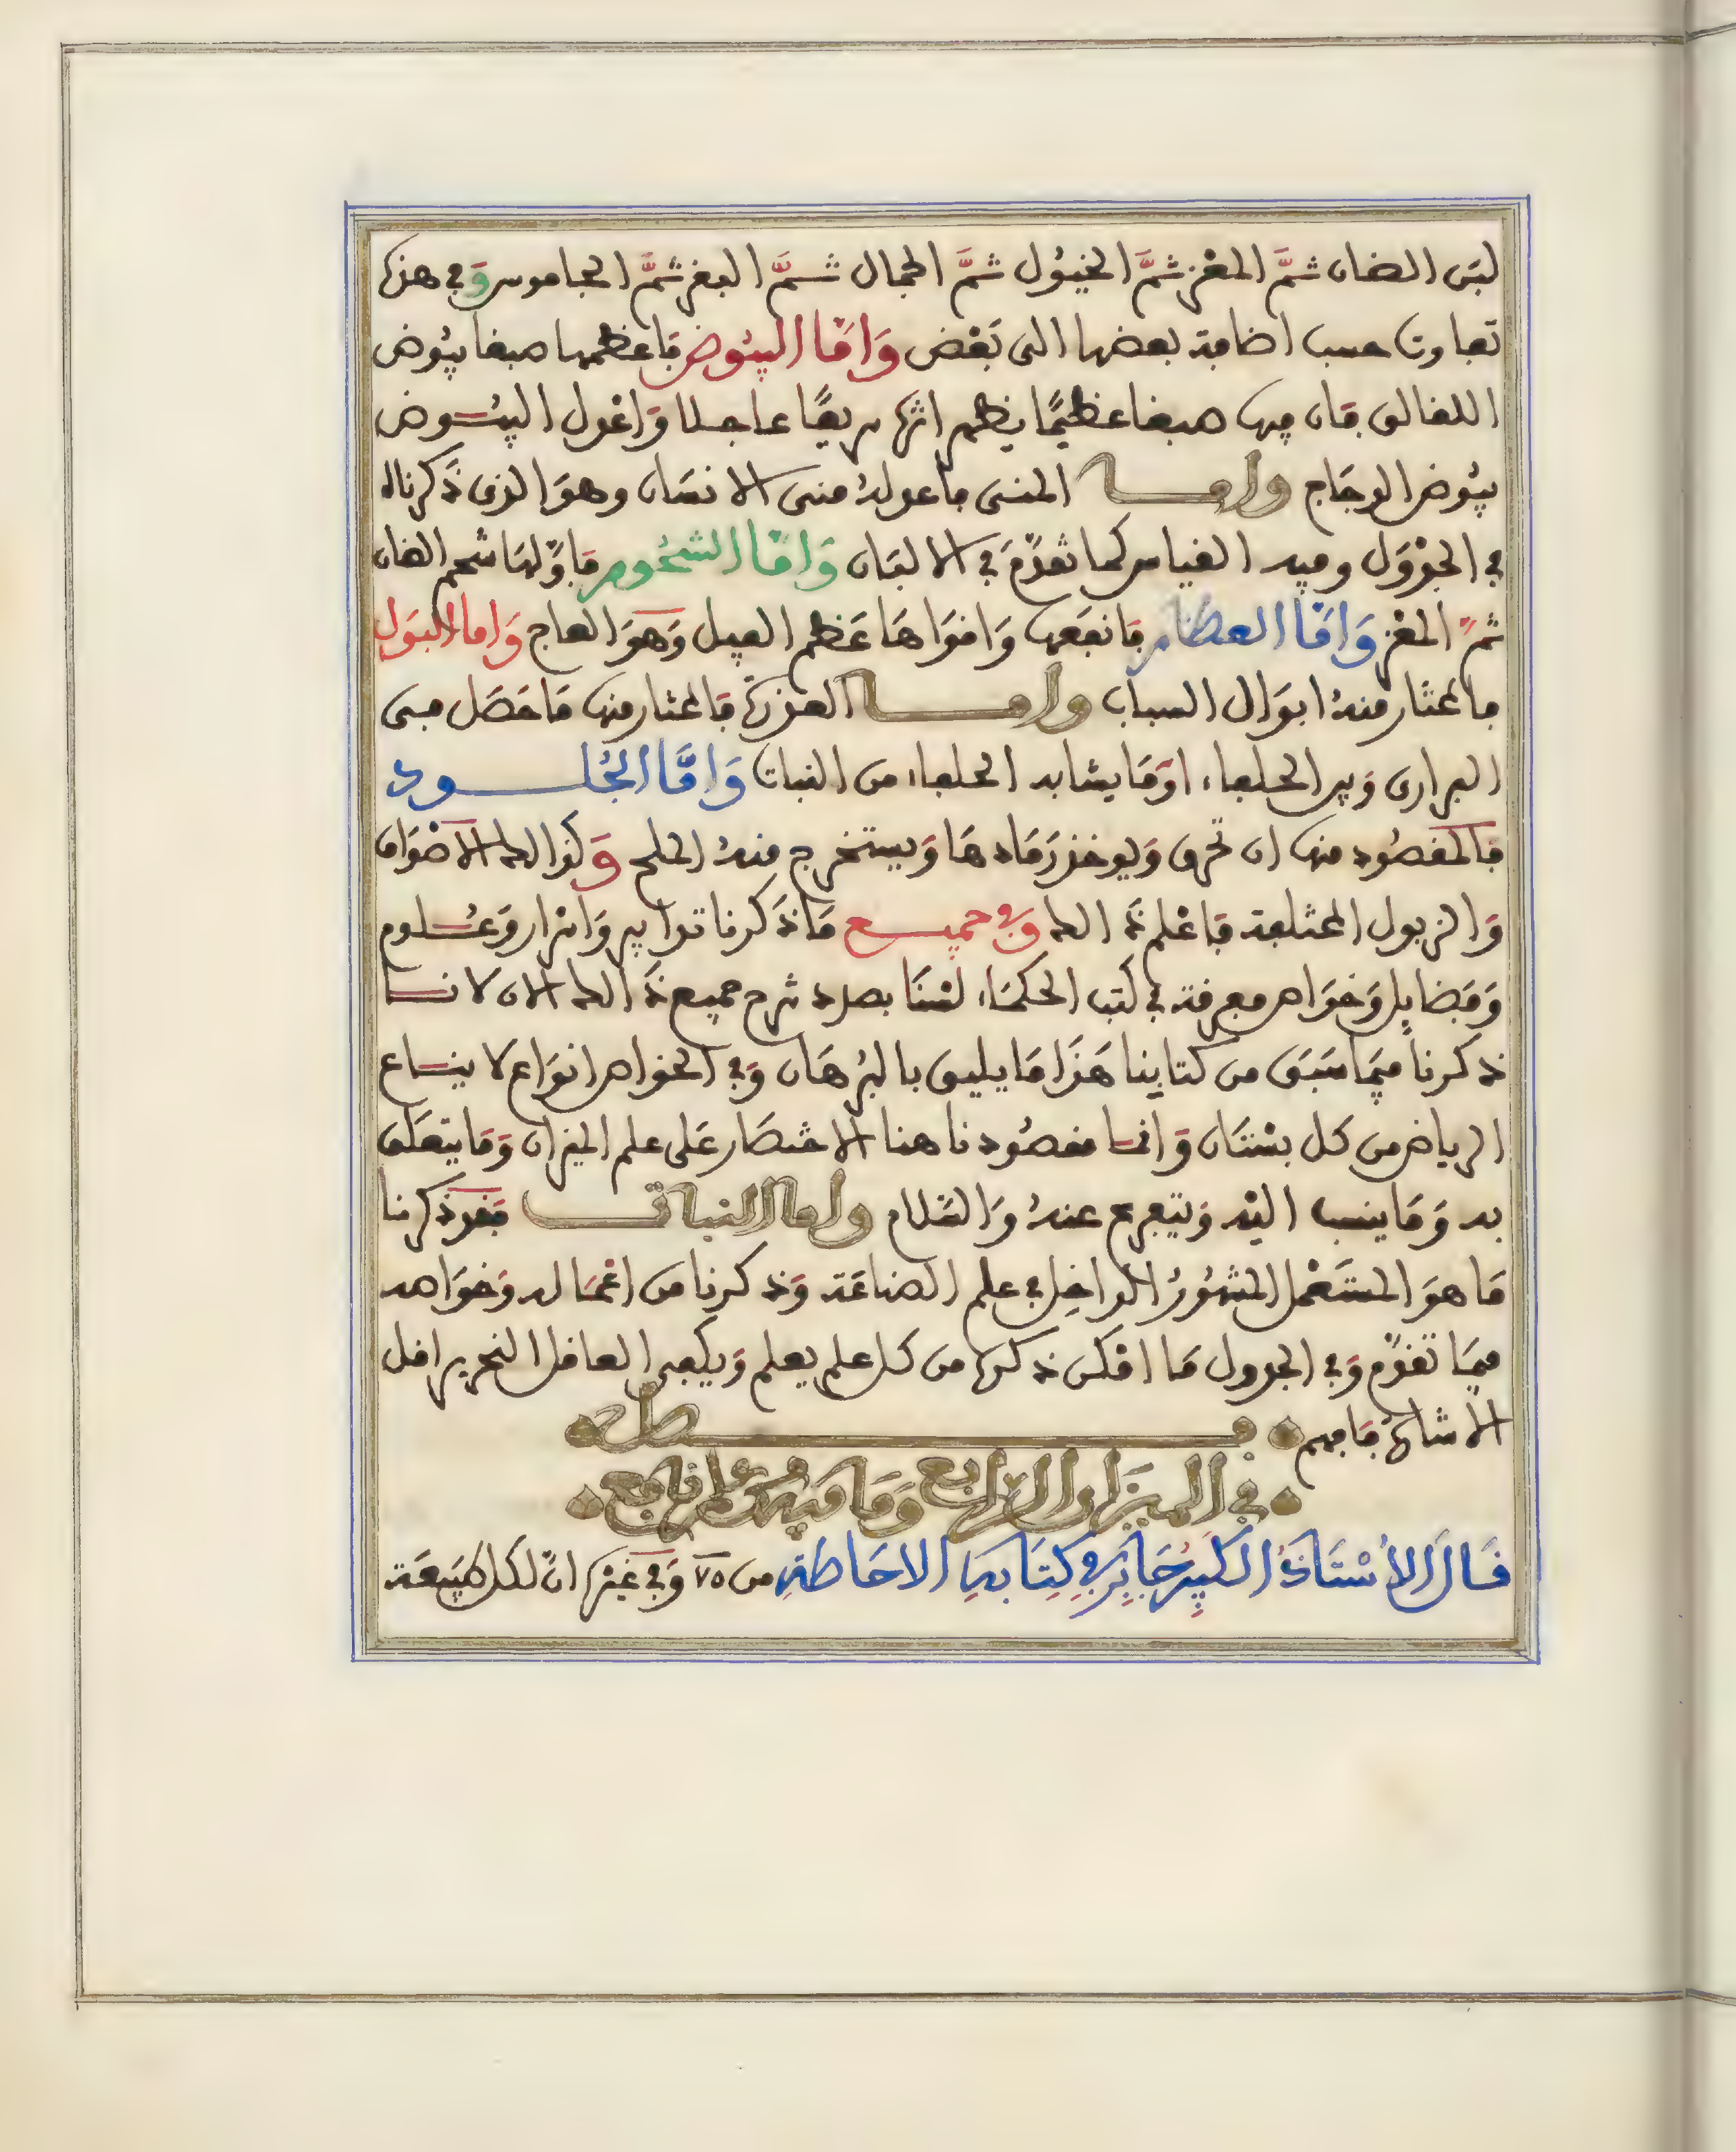 لبن الضان ثمَّ المعْز ثمَّ الخيُول ثمَّ الجمال ثمَّ البقر ثمَّ الجاموس وَفي هذه
تفاوت حسب اضافة بعضها الى بَعْض وَامَّا البيُوض فاعظمها صبغا بيُوض
اللقالق فان فيها صبغا عظيمًا يظهر اثره سريعًا عاجلا وَاعْدل البيُوض
بيُوض الدجَاج واما المنى فاعدله منى الانسَان وهوَ الذي ذَكرناه
في الجدْوَل وفيه القياس كما تقدَّمَ في الالبَان وَامَّا الشحُوم فاوَّلهَا شحم الضان
ثمَّ المعْز وَامَّا العظام فانفعَها وَاقوَاهَا عَظم الفيل وَهوَ العاج وَاما البَول
فالمختار منهُ ابوَال السباب واما العذرة فالمختار منها مَا حَصَل من
البراري وَبين الحلفاء اوْمَا يشابه الحلفاء من النبات وَامَّا الجُلود
فالمقصُود منها ان تحرق وَيوخذ رَمَادهَا وَيستخرج منهُ الملح وَكذالك الاصْوَاف
وَالزبول المختلفة فاعْلم ذَالك وَفي جميع مَا ذَكرنا تدابير وَاسْرار وَعُلوم
وَفضايل وَخوَاص معرفته في كتب الحكمَاء لسْنَا بصدد شرح جميع ذَالك الان لاننا
ذكرنا فيمَا سَبَق من كتابنا هَذَا مَا يليق بالبُرهَان وَفي الخواص انوَاع لا يتساع
الرياض من كل بسْتَان وَانما مقصُودنا هنا الاختصَار عَلى علم الميزان وَمَا يتعلَق
به وَمَا ينسب اليْه وَيتفرع عنهُ وَالسَّلام واما النبات فقد ذَكرنا
مَا هوَ المستَعْمل المشهُورُ الداخِل في علم الصناعَة وَذكرنا من اعْمَاله وَخوَاصه
فيمَا تقدَّم وَفي الجدول مَا امْكن ذكره من كل علم يعلم وَيكفي العاقل النحرير اقل
الاشارة فافهم فصل
في الميزان الرابع وَمَا فيه من علم نافع
قَالَ الاُسْتَاذُ الكَبِيرُ جَابِر فِي كِتَابِهِ الاحَاطَةِ من ٧٥ وَفي غيْره انَّ لكل طبيعَة